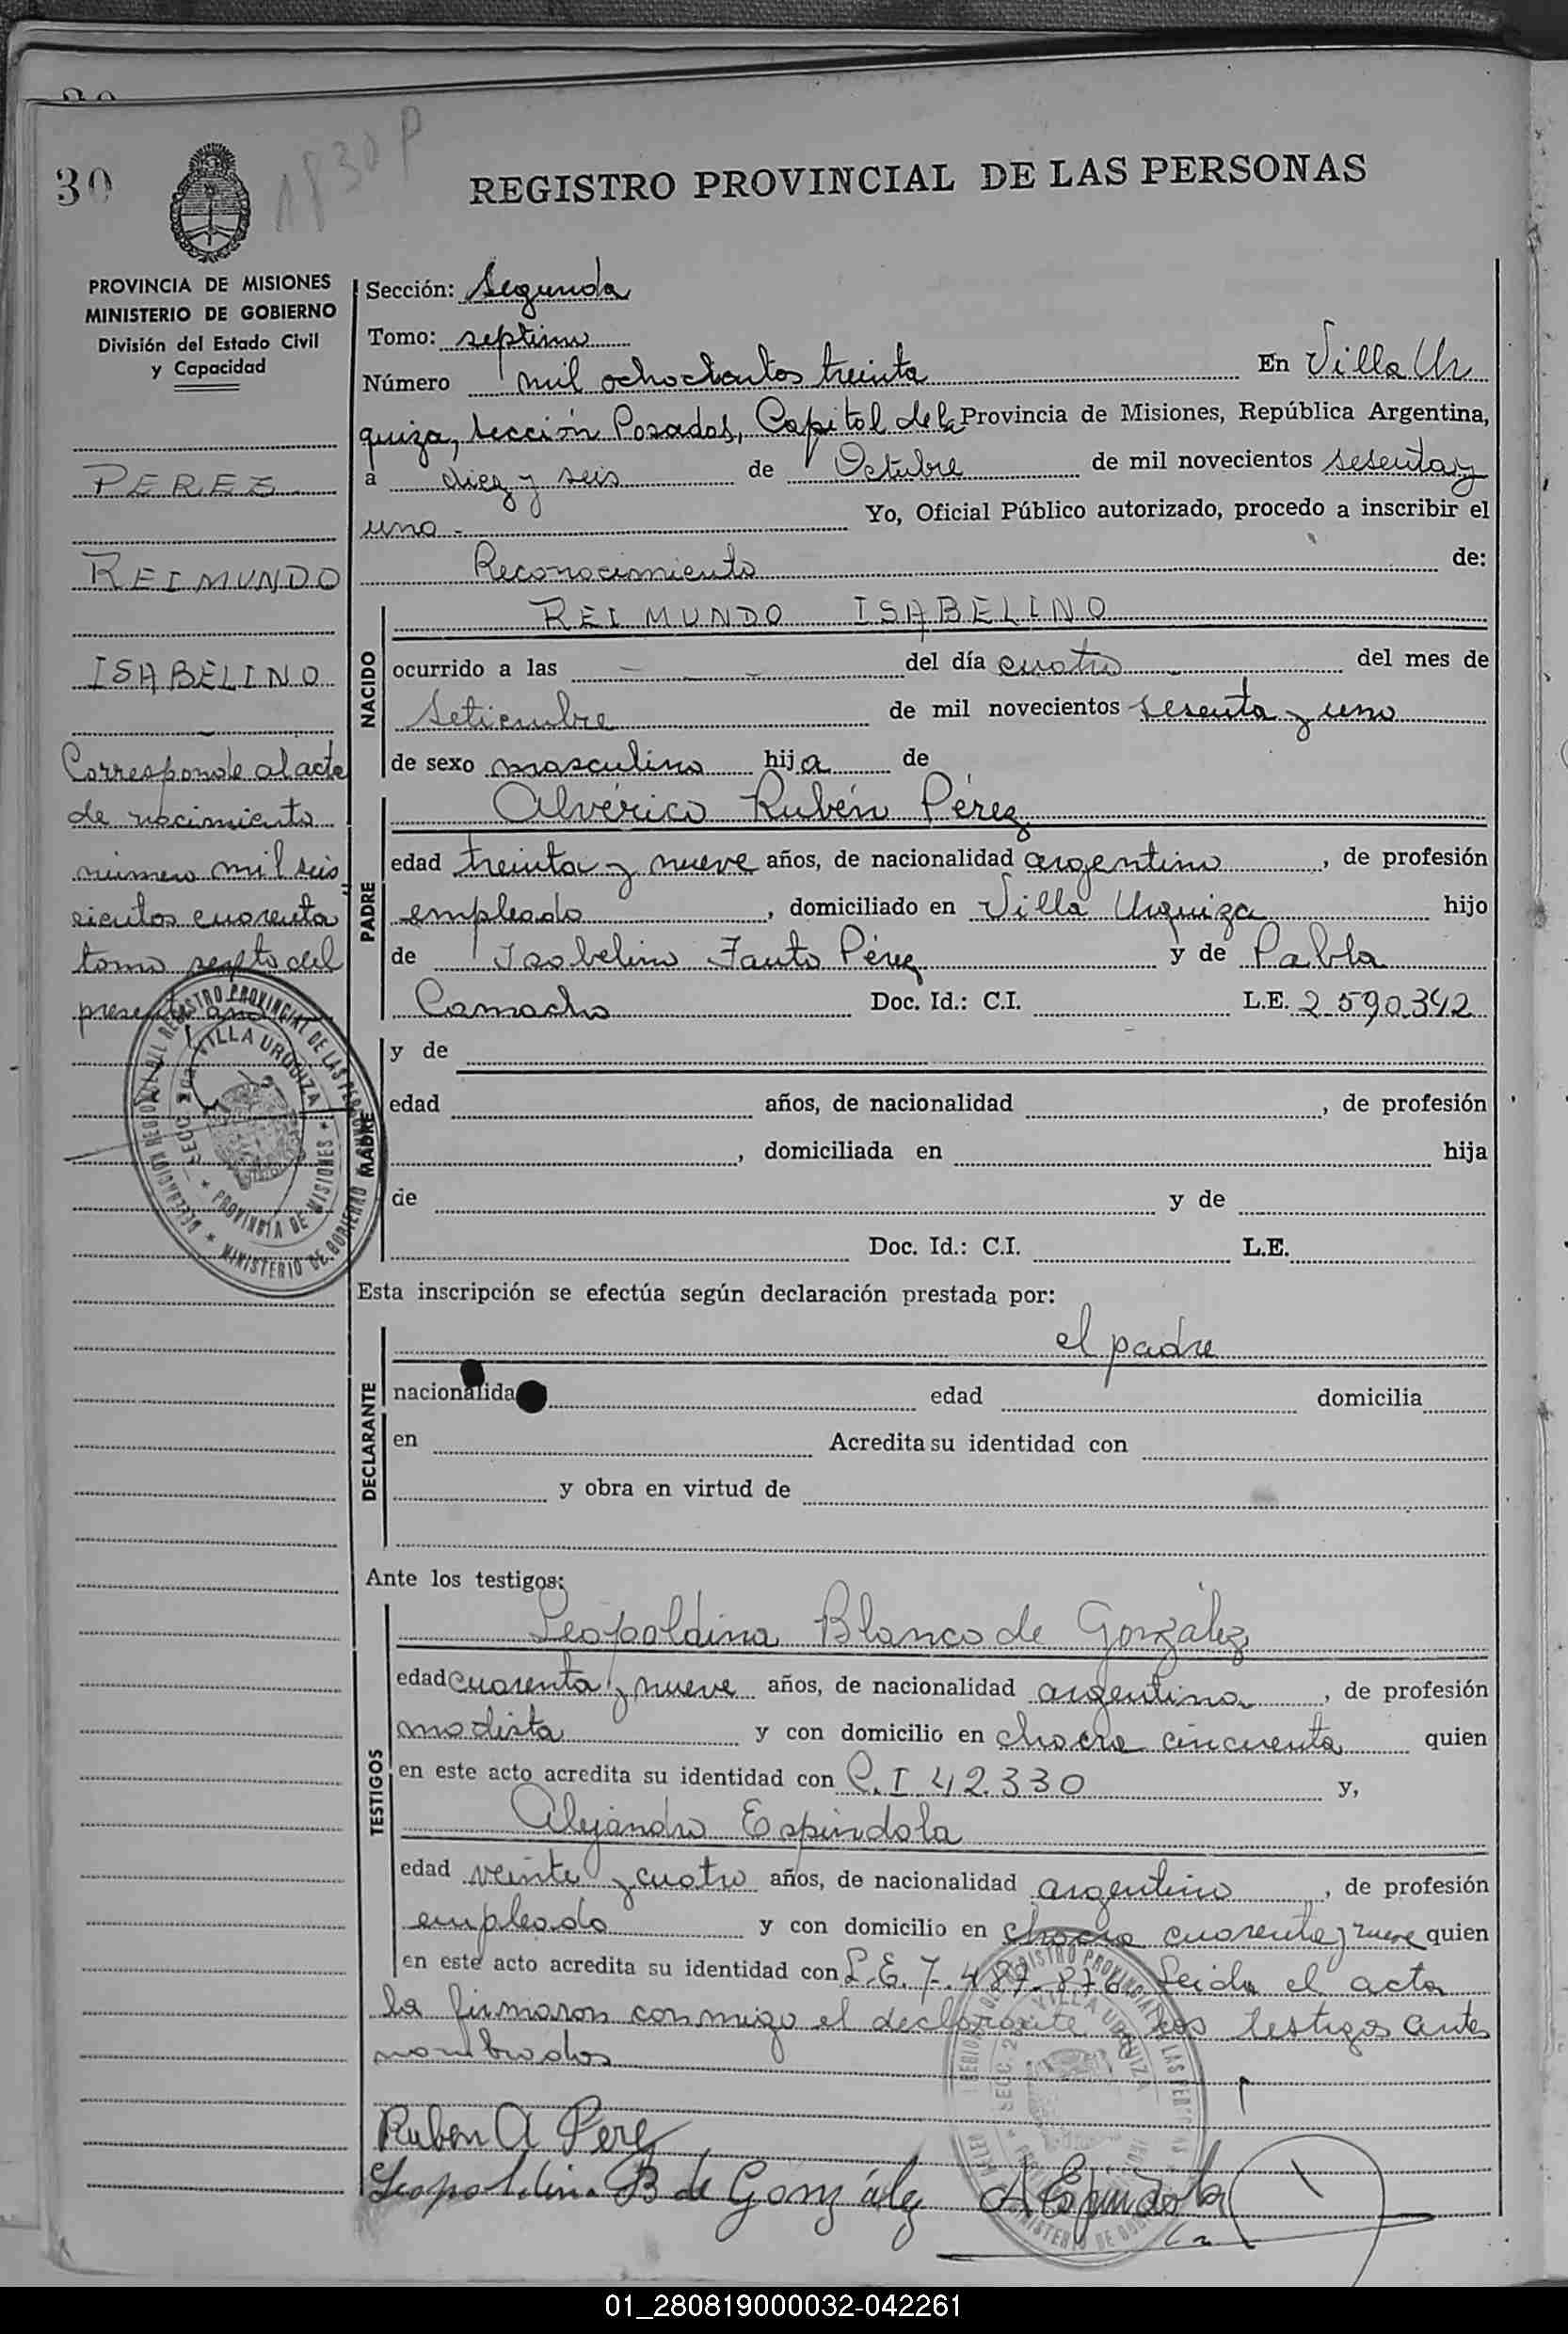 30
1830 P
REGISTRO PROVINCIAL DE LAS PERSONAS
PROVINCIA DE MISIONES
MINISTERIO DE GOBIERNO
División del Estado Civil
y Capacidad
PEREZ
REIMUNDO
ISABELINO
Corresponde al acta
de nacimiento
número mil seis
cientos cuarenta
tomo septo del
presente año
DELEGACION REGIONAL DEL REGISTRO PROVINCIAL DE LAS PERSONAS
SECC. 2da VILLA URQUIZA
PROVINCIA DE MISIONES
MINISTERIO DE GOBIERNO
Sección: Segunda
Tomo: septimo
Número mil ochocientos treinta En Villa Ur
quiza, sección Posadas, Capital de la Provincia de Misiones, República Argentina,
a diez y seis de Octubre de mil novecientos sesenta y
uno - Yo, Oficial Público autorizado, procedo a inscribir el
Reconocimiento de:
NACIDO
REIMUNDO ISABELINO
ocurrido a las - - - del día cuatro del mes de
Setiembre de mil novecientos sesenta y uno
de sexo masculino hija de
PADRE
Alvérico Rubén Pérez
edad treinta y nueve años, de nacionalidad argentino, de profesión
empleado, domiciliado en Villa Urquiza hijo
de Isabelino Fauto Pérez y de Pabla
Camacho Doc. Id.: C.I. L.E. 2.590.342
MADRE
y de
edad años, de nacionalidad , de profesión
, domiciliada en hija
de y de
Doc. Id.: C.I. L.E.
Esta inscripción se efectúa según declaración prestada por:
DECLARANTE
el padre
nacionalida edad domicilia
en Acredita su identidad con
y obra en virtud de
Ante los testigos:
TESTIGOS
Leopoldina Blanco de González
edad cuarenta y nueve años, de nacionalidad argentina, de profesión
modista y con domicilio en chacra cincuenta quien
en este acto acredita su identidad con C.I 42.330 y,
Alejandro Espindola
edad veinte y cuatro años, de nacionalidad argentino, de profesión
empleado y con domicilio en chacra cuarenta y nueve quien
en este acto acredita su identidad con L.E. 7.487.876 Leida el acta
la firmaron conmigo el declarante y los testigos antes
nombrados
Ruben A Perez
Leopoldina B de González A Espindola
01_280819000032-042261